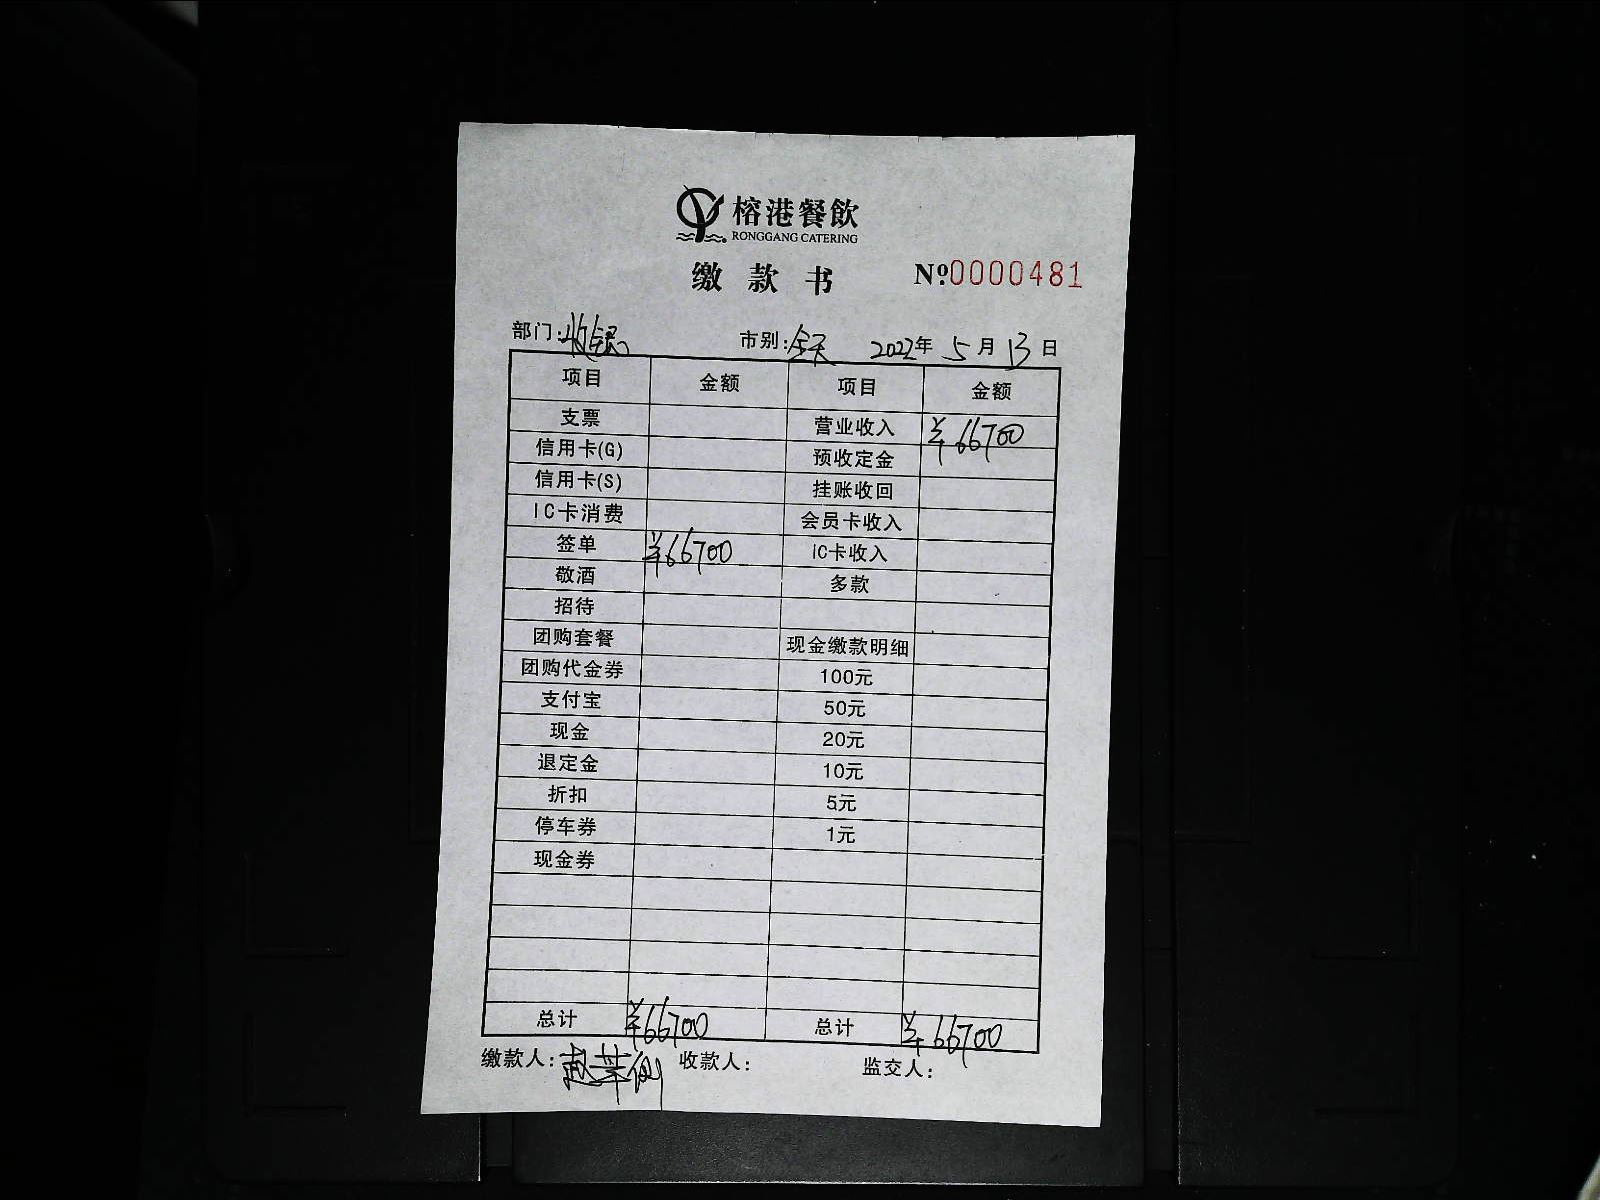 榕港餐飲
RONGGANG CATERING
缴款书 №0000481
部门:收银 市别:全天 2022年5月13日
项目 金额 项目 金额
支票 营业收入 ¥66700
信用卡(G) 预收定金
信用卡(S) 挂账收回
IC卡消费 会员卡收入
签单 ¥66700 IC卡收入
敬酒 多款
招待
团购套餐 现金缴款明细
团购代金券 100元
支付宝 50元
现金 20元
退定金 10元
折扣 5元
停车券 1元
现金券
总计 ¥66700 总计 ¥66700
缴款人: 收款人: 监交人: